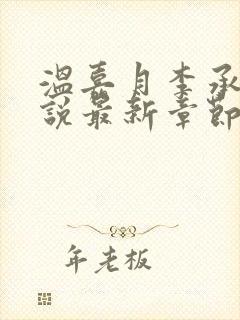 温喜月李承
說最新章節
年老板